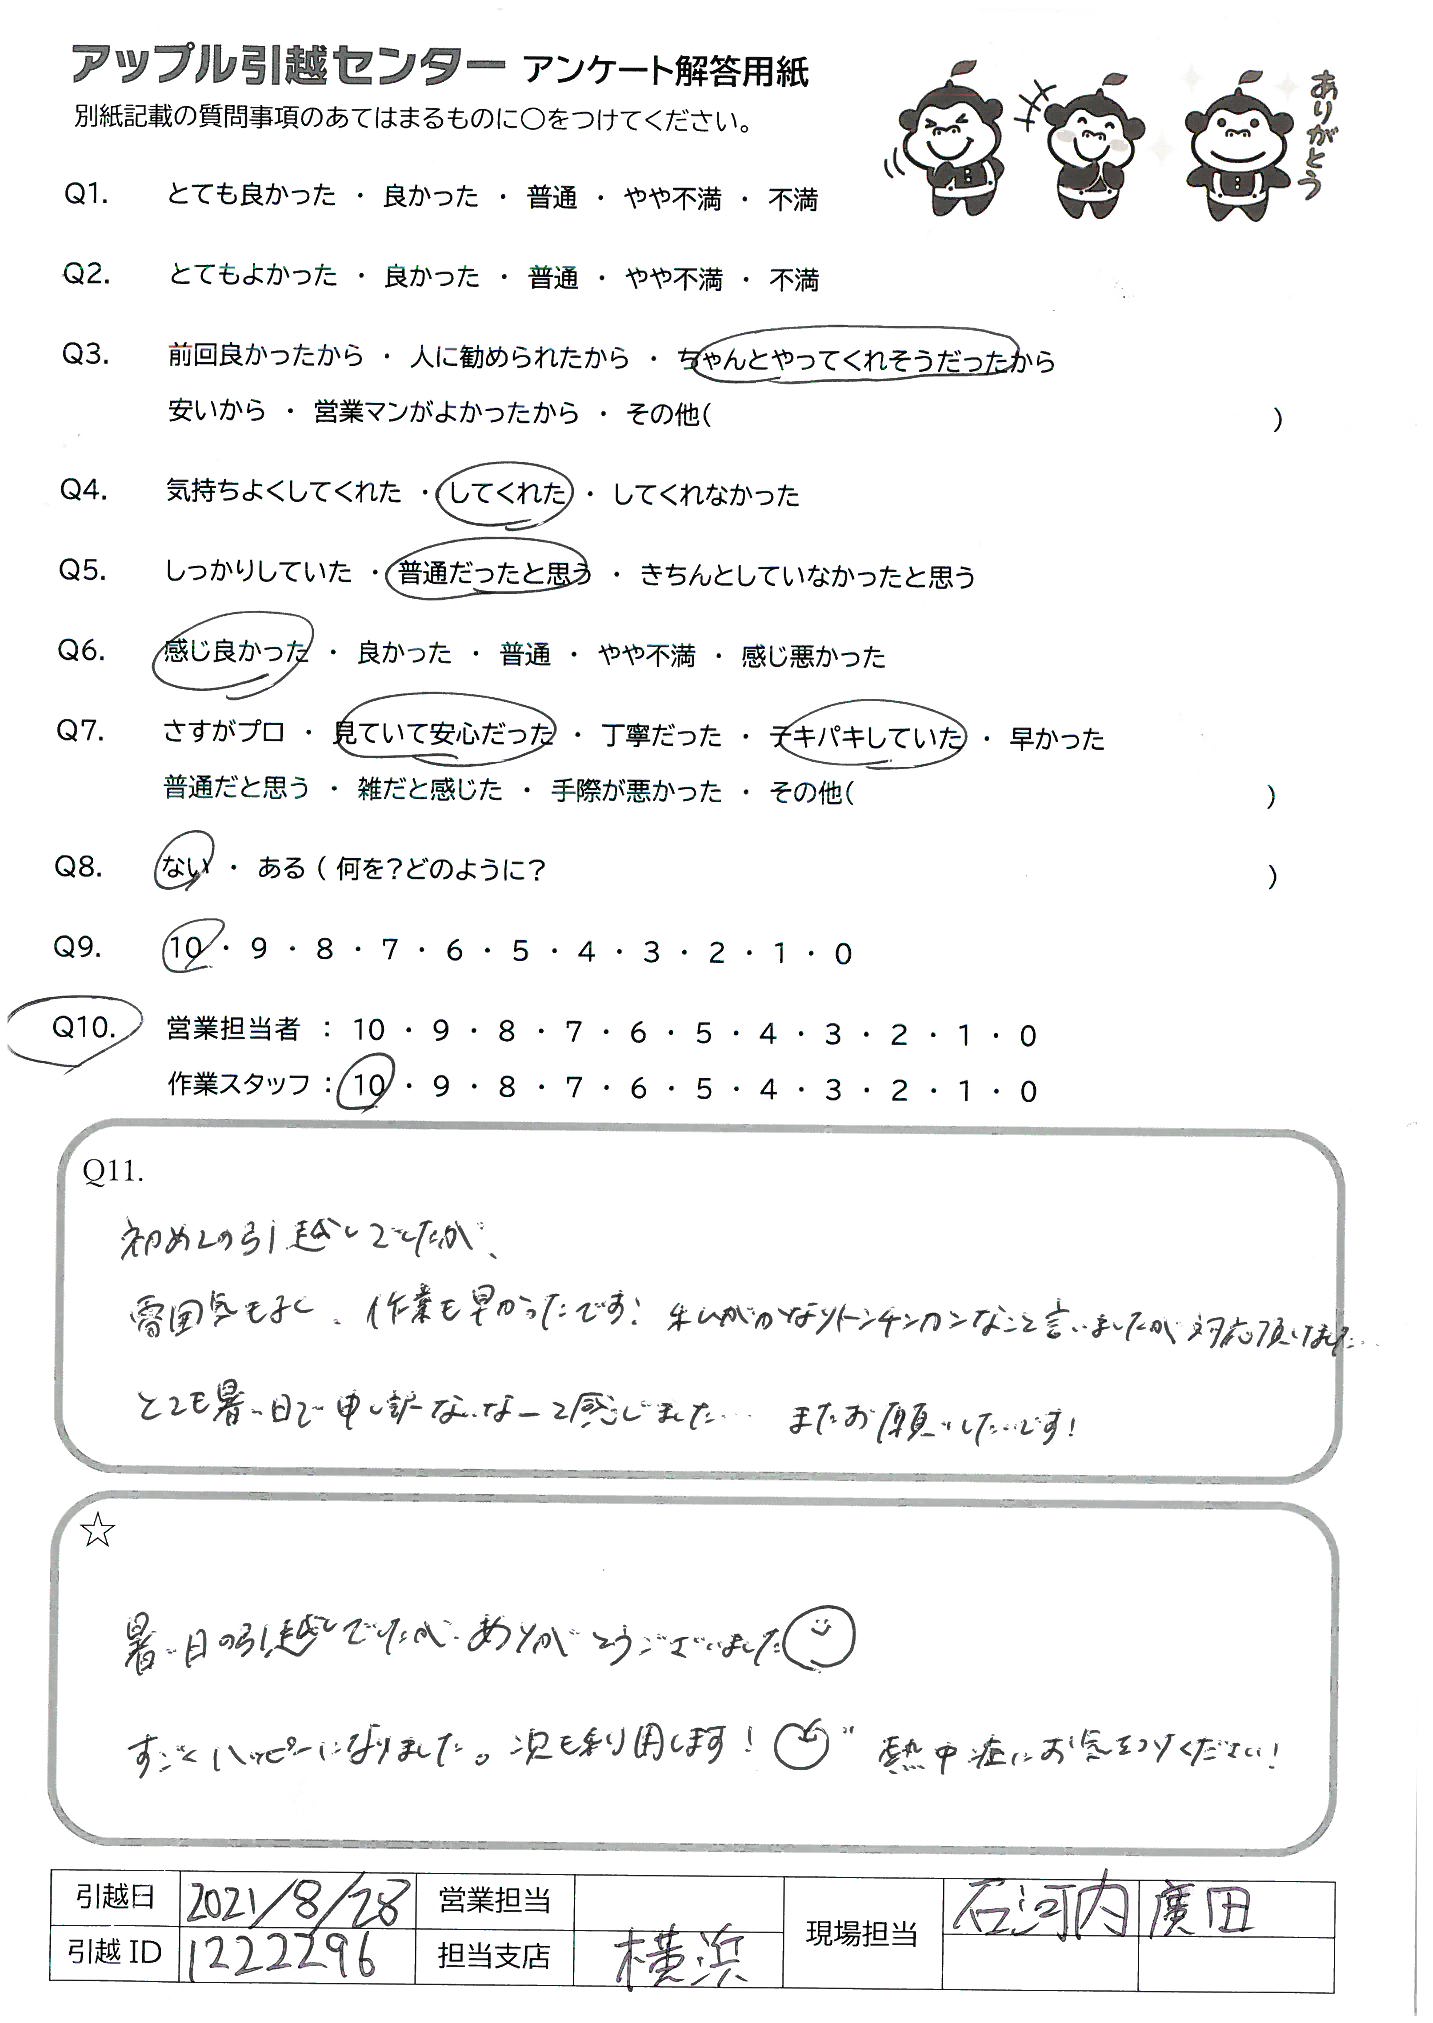 アップル引越センター アンケート解答用紙
別紙記載の質問事項のあてはまるものに○をつけてください。
ありがとう
Q1. とても良かった ・ 良かった ・ 普通 ・ やや不満 ・ 不満
Q2. とてもよかった ・ 良かった ・ 普通 ・ やや不満 ・ 不満
Q3. 前回良かったから ・ 人に勧められたから ・ ちゃんとやってくれそうだったから
安いから ・ 営業マンがよかったから ・ その他( )
Q4. 気持ちよくしてくれた ・ してくれた ・ してくれなかった
Q5. しっかりしていた ・ 普通だったと思う ・ きちんとしていなかったと思う
Q6. 感じ良かった ・ 良かった ・ 普通 ・ やや不満 ・ 感じ悪かった
Q7. さすがプロ ・ 見ていて安心だった ・ 丁寧だった ・ テキパキしていた ・ 早かった
普通だと思う ・ 雑だと感じた ・ 手際が悪かった ・ その他( )
Q8. ない ・ ある ( 何を?どのように? )
Q9. 10 ・ 9 ・ 8 ・ 7 ・ 6 ・ 5 ・ 4 ・ 3 ・ 2 ・ 1 ・ 0
Q10. 営業担当者 : 10 ・ 9 ・ 8 ・ 7 ・ 6 ・ 5 ・ 4 ・ 3 ・ 2 ・ 1 ・ 0
作業スタッフ : 10 ・ 9 ・ 8 ・ 7 ・ 6 ・ 5 ・ 4 ・ 3 ・ 2 ・ 1 ・ 0
Q11.
初めての引越しでしたが、
雰囲気もよく、作業も早かったです! トンチンカンなこと言いましたが対応頂けました…
とても暑い日で申し訳ないなーと感じました… またお願いしたいです!
☆
暑い日の引越しでしたが、ありがとうございました
すごくハッピーになりました。次も利用します! 熱中症にお気をつけください!
引越日 2021/8/28 営業担当 現場担当 石河内 廣田
引越 ID 1222296 担当支店 横浜